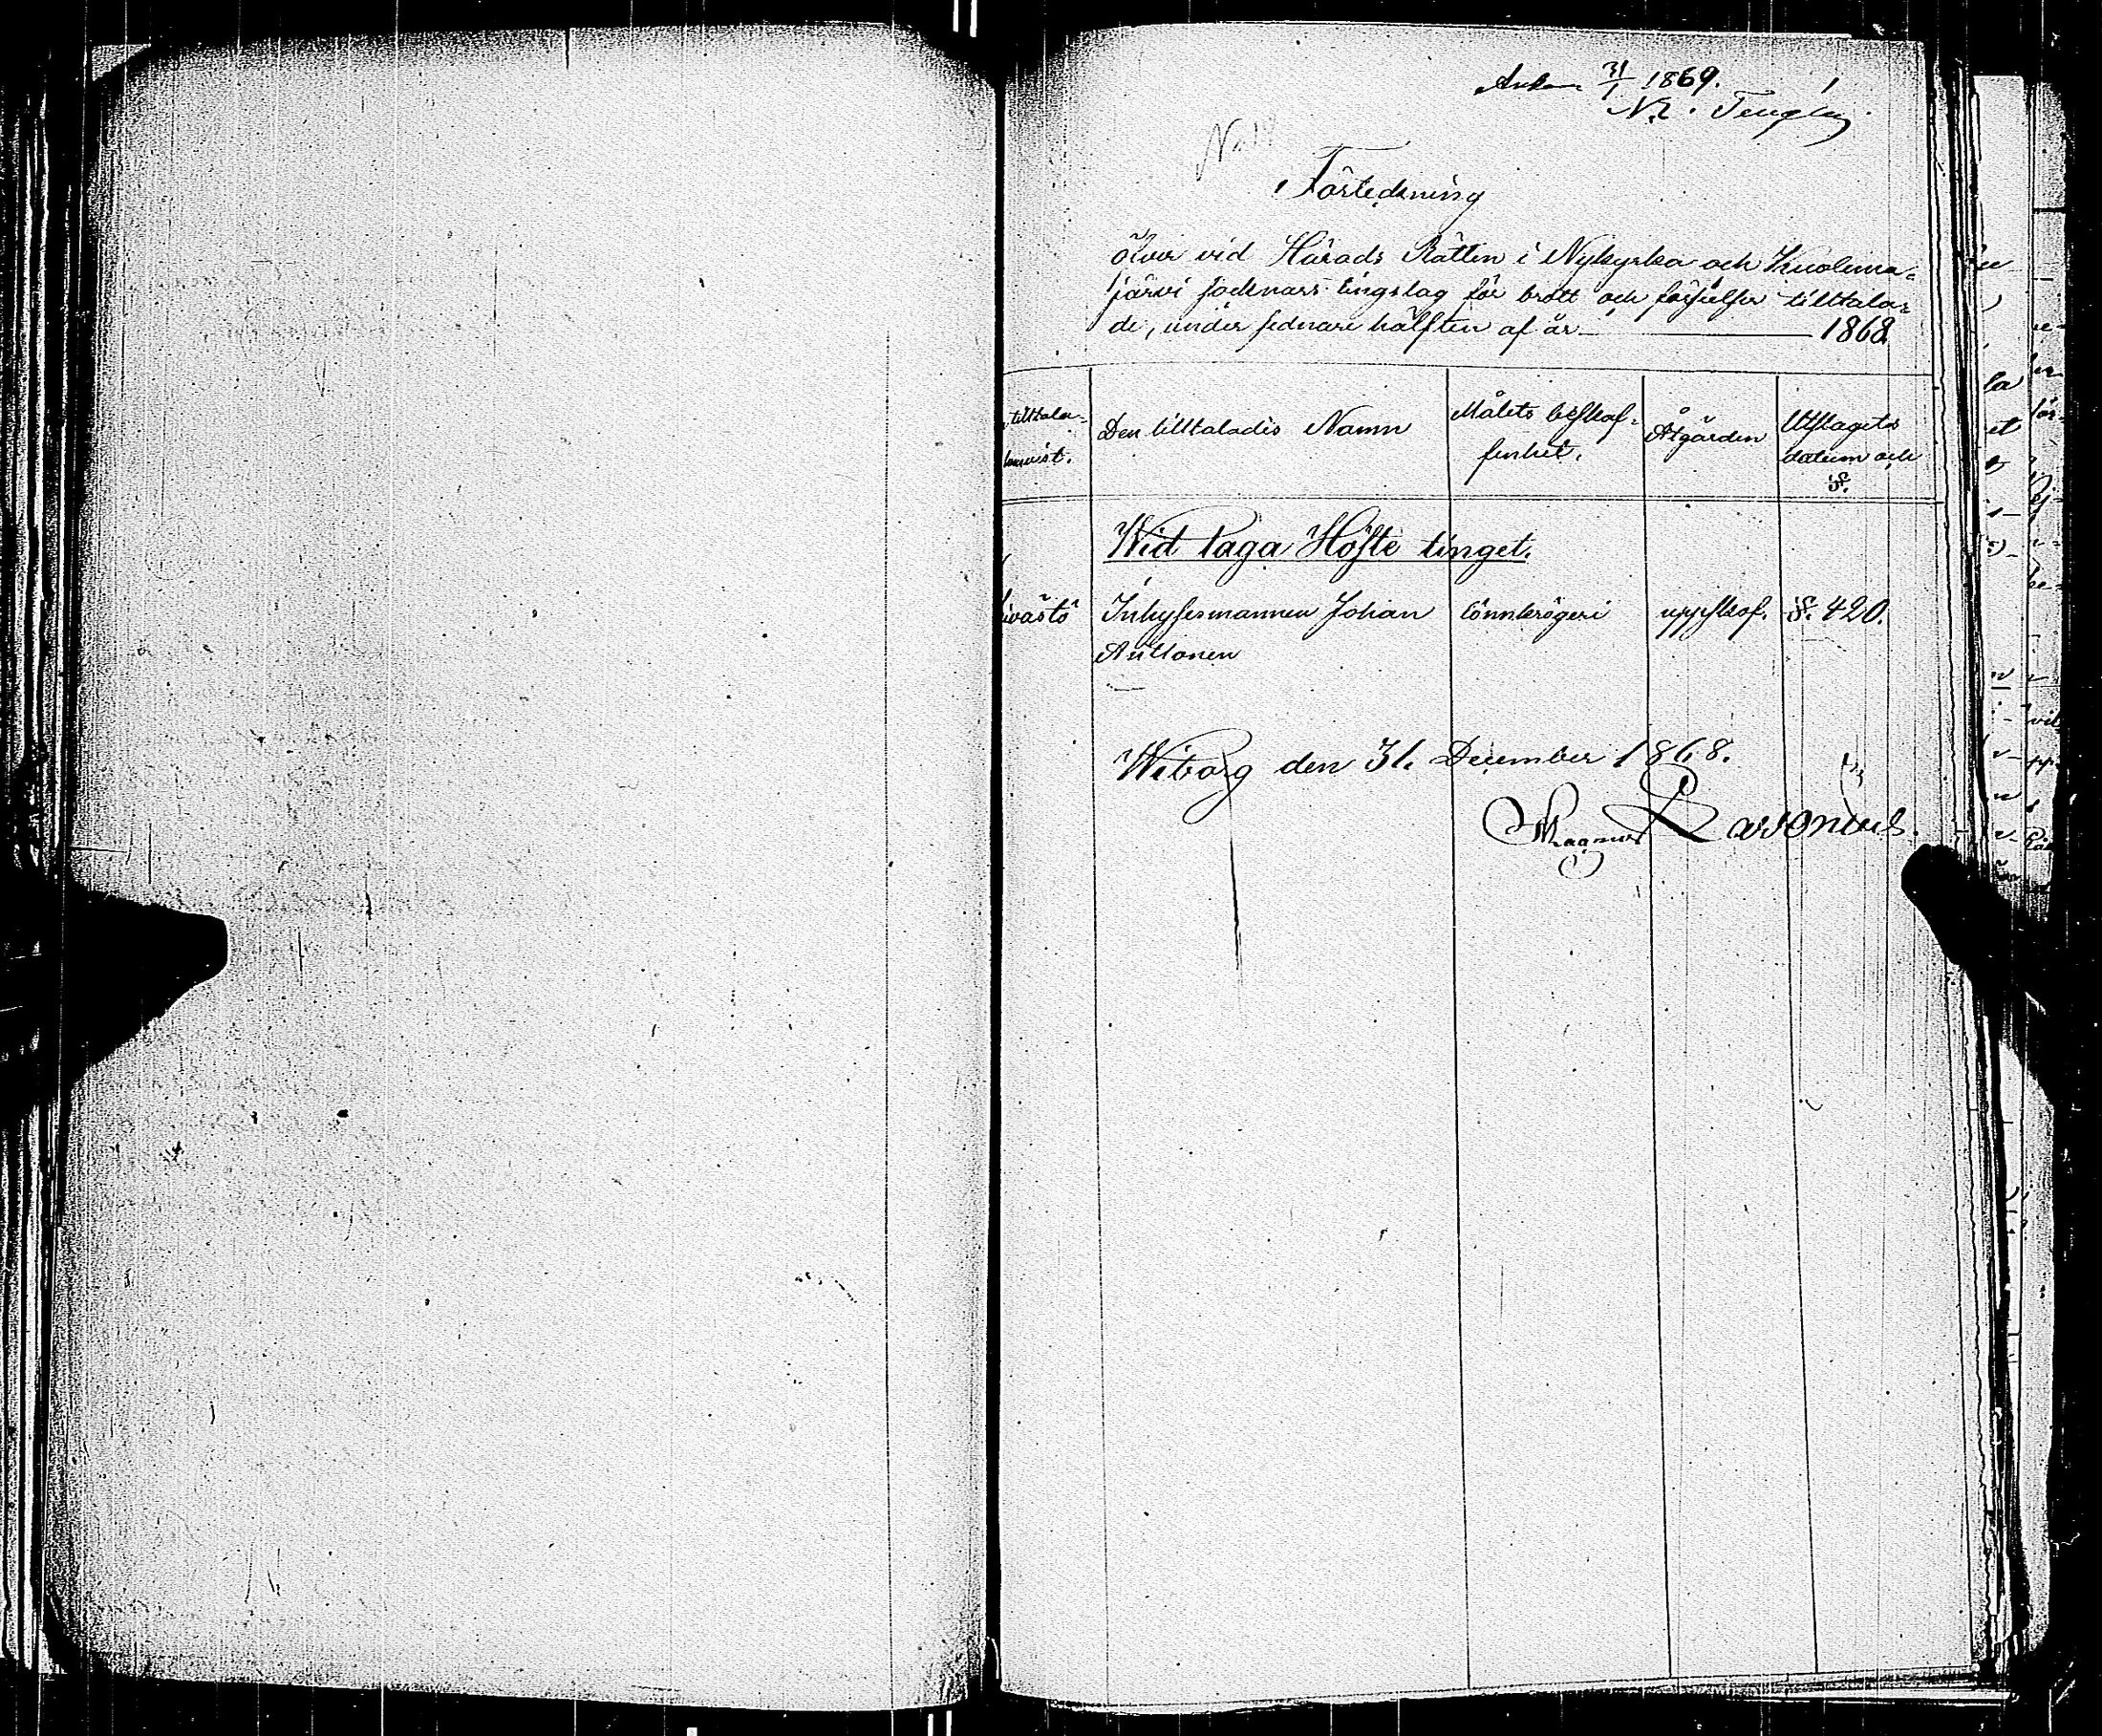 Ank. 31/1 1869.
N. Tengén
No 14
Förteckning
öfver vid Härads Rätten i Nykyrka och Kuolema-
järvi socknars tingslag för brott och förseelser tilltala-
de, under sednare hälften af år 1868.
tilltala-
hemvist.
Den tilltalades Namn
Målets beskaf-
fenhet.
Åtgärden
Utslagets
datum och
§.
Wid laga Höste tinget.
ivastö Inhysesmannen Johan lönnkrögeri uppskof. §. 420.
Anttonen
Wiborg den 31. December 1868.
Magnus Lavonius.